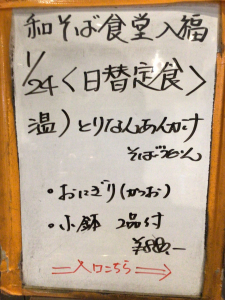 和そば食堂入福
1/24〈日替定食〉
温）とりなんあんかけ
そばorうどん
・おにぎり(かつお)
・小鉢 2品付
¥880.-
入口こちら